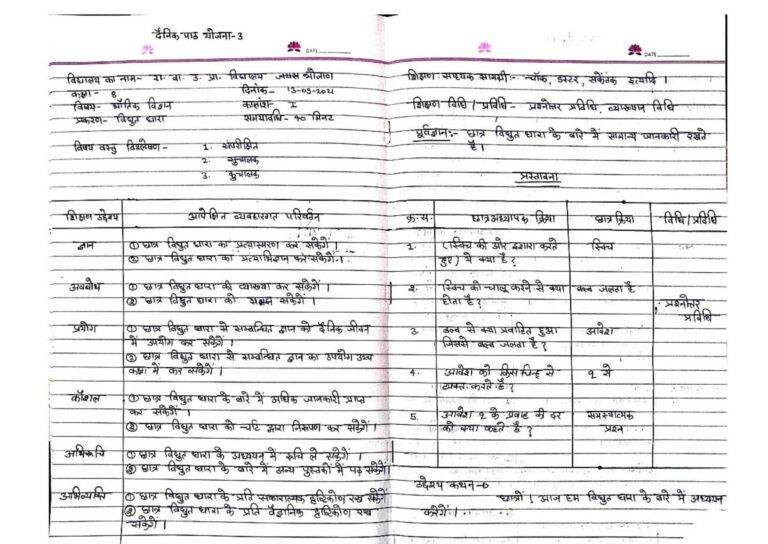 दैनिक पाठ योजना-3
DATE
विद्यालय का नाम- रा. बा. उ. प्रा. विद्यालय
कक्षा - 8
दिनांक- 13-09-2021
विषय- भौतिक विज्ञान
कालांश- I
प्रकरण- विद्युत धारा
समयावधि- 40 मिनट
विषय वस्तु विश्लेषण-
1.
2. सुचालक
3. कुचालक
शिक्षण उद्देश्य
अपेक्षित व्यवहारगत परिवर्तन
ज्ञान
① छात्र विद्युत धारा का प्रत्यास्मरण कर सकेगें ।
② छात्र विद्युत धारा का प्रत्याभिज्ञान कर सकेगें ।
अवबोध
① छात्र विद्युत धारा की व्याख्या कर सकेगें ।
② छात्र विद्युत धारा को सकेगें ।
प्रयोग
① छात्र विद्युत धारा से सम्बन्धित ज्ञान को दैनिक जीवन
में उपयोग कर सकेगें ।
② छात्र विद्युत धारा से सम्बन्धित ज्ञान का उपयोग उच्च
कक्षा में कर सकेगें ।
कौशल
① छात्र विद्युत धारा के बारे में अधिक जानकारी प्राप्त
कर सकेगें ।
② छात्र विद्युत धारा को चार्ट द्वारा निरूपण कर सकेगें ।
अभिरूचि
① छात्र विद्युत धारा के अध्ययन में रूचि ले सकेगें ।
② छात्र विद्युत धारा के बारे में अन्य पुस्तकों में पढ़ सकेगें ।
अभिव्यक्ति
① छात्र विद्युत धारा के प्रति सकारात्मक दृष्टिकोण रख सकेगें
② छात्र विद्युत धारा के प्रति वैज्ञानिक दृष्टिकोण रख
सकेगें ।
DATE
शिक्षण सहायक सामग्री:- चॉक, डस्टर, संकेतक इत्यादि ।
शिक्षण विधि / प्रविधि - प्रश्नोत्तर प्रविधि, व्याख्यान विधि
पूर्वज्ञान:- छात्र विद्युत धारा के बारे में सामान्य जानकारी रखते
है ।
प्रस्तावना
क्र.स.
छात्रअध्यापक क्रिया
छात्र क्रिया
विधि / प्रविधि
1.
(स्विच की ओर इशारा करते
हुए) ये क्या है ?
स्विच
2.
स्विच को चालू करने से क्या
होता है ?
बल्ब जलता है
प्रश्नोत्तर
प्रविधि
3.
बल्ब से क्या प्रवाहित हुआ
जिससे बल्ब जलता है ?
आवेश
4.
आवेश को किस चिन्ह से
व्यक्त करते है ?
q से
5.
आवेश q के प्रवाह की दर
को क्या कहते है ?
समस्यात्मक
प्रश्न
उद्देश्य कथन-
छात्रों ! आज हम विद्युत धारा के बारे में अध्ययन
करेगें ।